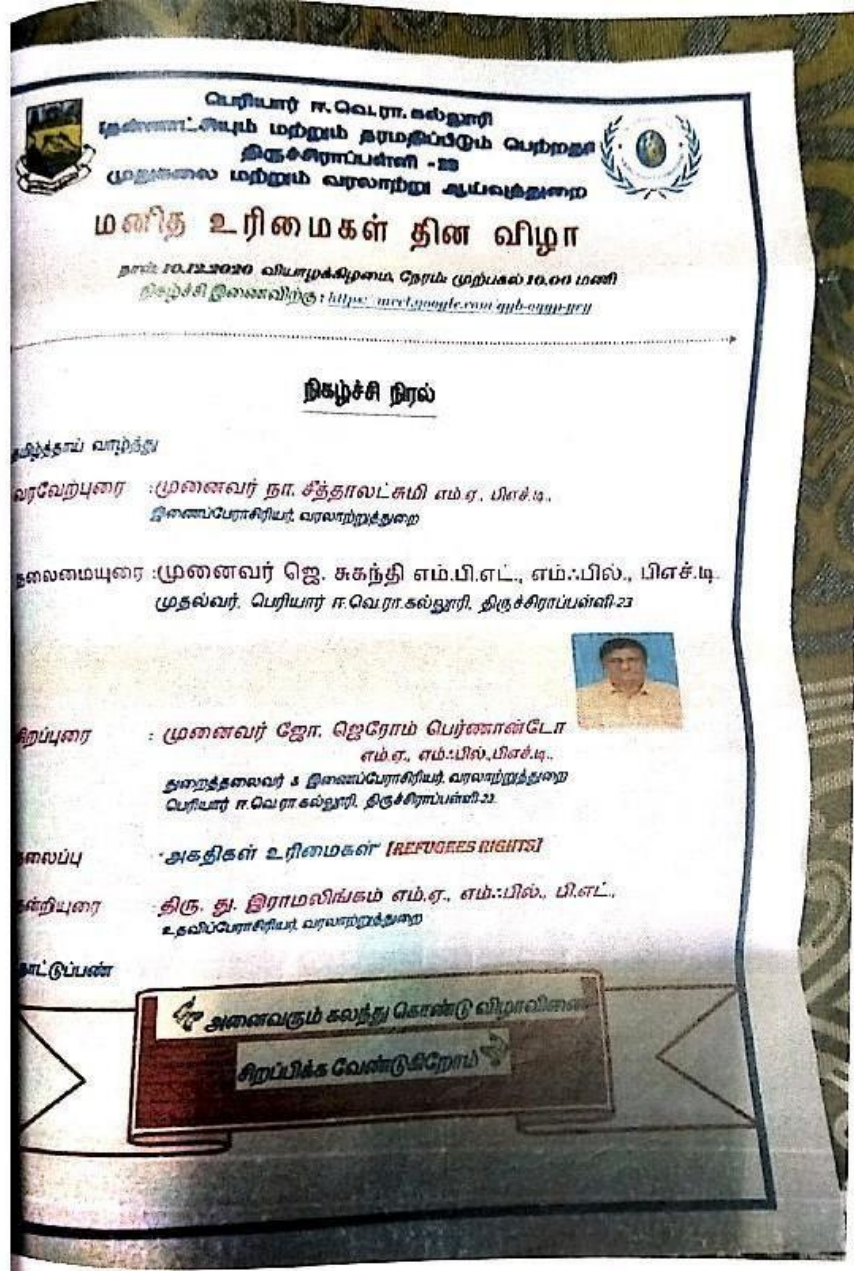 பெரியார் ஈ.வெ.ரா.கல்லூரி
(தன்னாட்சியும் மற்றும் தரமதிப்பீடும் பெற்றது)
திருச்சிராப்பள்ளி -23
முதுகலை மற்றும் வரலாற்று ஆய்வுத்துறை
மனித உரிமைகள் தின விழா
நாள்: 10.12.2020 வியாழக்கிழமை, நேரம்: முற்பகல் 10.00 மணி
நிகழ்ச்சி இணைவிற்கு : https://meet.google.com/
நிகழ்ச்சி நிரல்
தமிழ்த்தாய் வாழ்த்து
வரவேற்புரை : முனைவர் நா. சீத்தாலட்சுமி எம்.ஏ., பிஎச்.டி.,
இணைப்பேராசிரியர், வரலாற்றுத்துறை
தலைமையுரை : முனைவர் ஜெ. சுகந்தி எம்.பி.எட்., எம்ஃபில்., பிஎச்.டி.
முதல்வர், பெரியார் ஈ.வெ.ரா.கல்லூரி, திருச்சிராப்பள்ளி-23
சிறப்புரை : முனைவர் ஜோ. ஜெரோம் பெர்ணான்டோ
எம்.ஏ., எம்ஃபில்.,பிஎச்.டி.,
துறைத்தலைவர் & இணைப்பேராசிரியர், வரலாற்றுத்துறை
பெரியார் ஈ.வெ.ரா.கல்லூரி, திருச்சிராப்பள்ளி-23.
தலைப்பு "அகதிகள் உரிமைகள்" [REFUGEES RIGHTS]
நன்றியுரை : திரு. து. இராமலிங்கம் எம்.ஏ., எம்ஃபில்., பி.எட்.,
உதவிப்பேராசிரியர், வரலாற்றுத்துறை
நாட்டுப்பண்
அனைவரும் கலந்து கொண்டு விழாவினை
சிறப்பிக்க வேண்டுகிறோம்